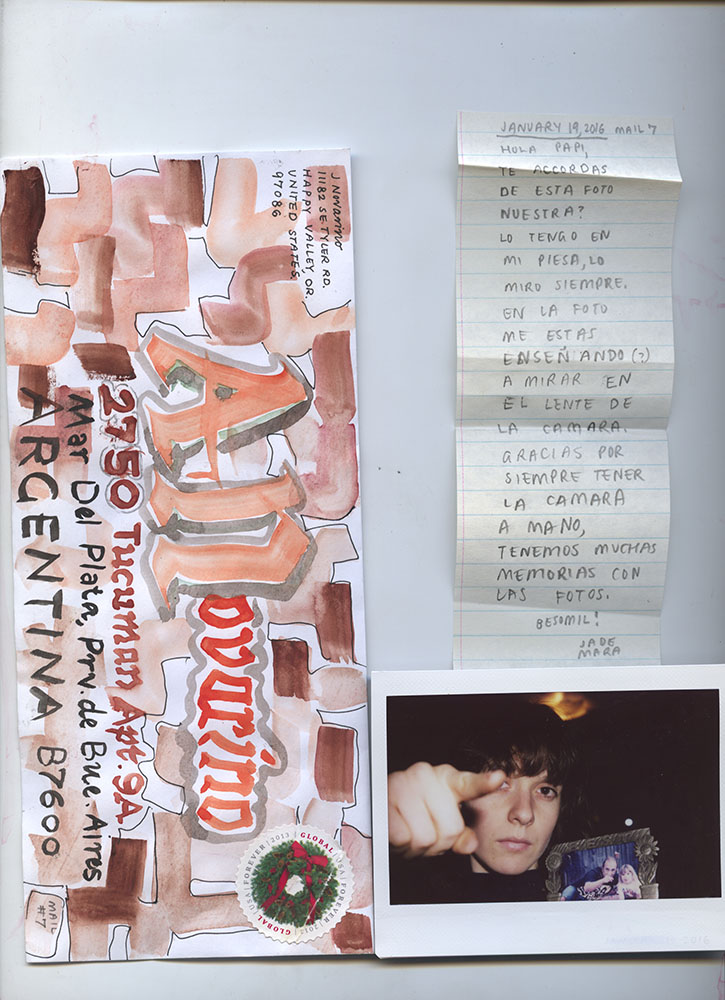 J Novarino
11182 SE TYLER RD.
HAPPY VALLEY, OR.
UNITED STATES
97086
A. Novarino
2750 Tucuman Apt. 9A
Mar Del Plata, Prv. de Bue. Aires
ARGENTINA B7600
MAIL
#7
GLOBAL | USA | FOREVER | 2013 | GLOBAL | USA | FOREVER | 2013 |
JANUARY 19, 2016 MAIL 7
HOLA PAPI,
TE ACCORDAS
DE ESTA FOTO
NUESTRA?
LO TENGO EN
MI PIESA, LO
MIRO SIEMPRE.
EN LA FOTO
ME ESTAS
ENSEÑANDO (?)
A MIRAR EN
EL LENTE DE
LA CAMARA.
GRACIAS POR
SIEMPRE TENER
LA CAMARA
A MANO,
TENEMOS MUCHAS
MEMORIAS CON
LAS FOTOS.
BESOMIL!
JADE
MARA